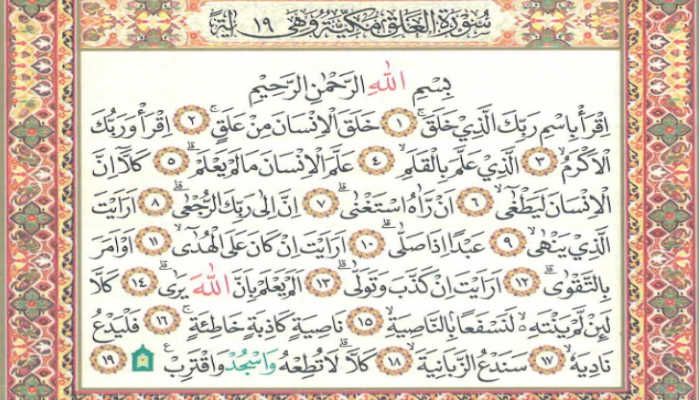 سُورَةُ الْعَلَقِ مَكِّيَّةٌ وَهِيَ ١٩ اٰيَةً
بِسْمِ اللهِ الرَّحْمٰنِ الرَّحِيمِ
اِقْرَأْ بِاسْمِ رَبِّكَ الَّذِي خَلَقَۚ ١ خَلَقَ الْاِنْسَانَ مِنْ عَلَقٍۚ ٢ اِقْرَأْ وَرَبُّكَ
الْاَكْرَمُۙ ٣ الَّذِي عَلَّمَ بِالْقَلَمِۙ ٤ عَلَّمَ الْاِنْسَانَ مَا لَمْ يَعْلَمْۜ ٥ كَلَّا اِنَّ
الْاِنْسَانَ لَيَطْغٰىۙ ٦ اَنْ رَاٰهُ اسْتَغْنٰىۜ ٧ اِنَّ اِلٰى رَبِّكَ الرُّجْعٰىۜ ٨ اَرَاَيْتَ
الَّذِي يَنْهٰىۙ ٩ عَبْدًا اِذَا صَلّٰىۜ ١٠ اَرَاَيْتَ اِنْ كَانَ عَلَى الْهُدٰىۙ ١١ اَوْ اَمَرَ
بِالتَّقْوٰىۜ ١٢ اَرَاَيْتَ اِنْ كَذَّبَ وَتَوَلّٰىۜ ١٣ اَلَمْ يَعْلَمْ بِاَنَّ اللهَ يَرٰىۜ ١٤ كَلَّا
لَئِنْ لَمْ يَنْتَهِۙ لَنَسْفَعًا بِالنَّاصِيَةِۙ ١٥ نَاصِيَةٍ كَاذِبَةٍ خَاطِئَةٍۚ ١٦ فَلْيَدْعُ
نَادِيَهُۙ ١٧ سَنَدْعُ الزَّبَانِيَةَۙ ١٨ كَلَّاۜ لَا تُطِعْهُ وَاسْجُدْ وَاقْتَرِبْ ١٩